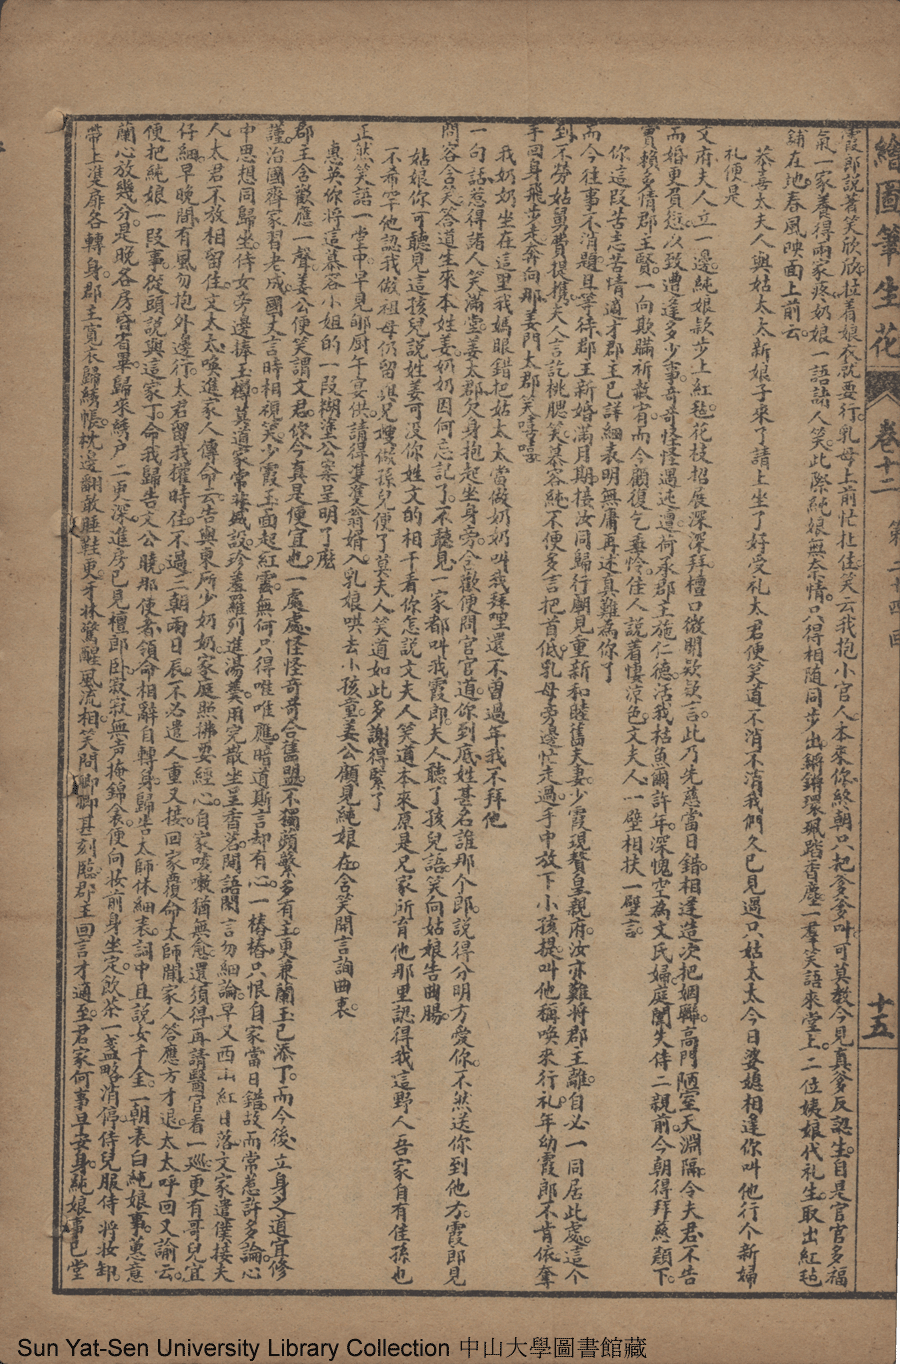 繪圖筆生花 卷十二 第二十四回 十五
霞郎說著笑欣欣拉着娘衣就要行乳母上前忙拦住笑云我抱小官人本來你終朝只把爹爹叫可莫教今見真爹反認生自是官官多福
氣一家養得兩家疼奶娘一語諸人笑此際純娘無奈情只得相随同步出鏘鏘環珮踏香塵一羣笑語來堂上二位姨娘代礼生取出紅毡
鋪在地春風映面上前云
恭喜太夫人與姑太太新娘子來了請上坐了好受礼太君便笑道不消不消我們久已見過只姑太太今日婆媳相逢你叫他行个新婦
礼便是
文府夫人立一邊純娘款步上紅毡花枝招展深深拜檀口微開欵欵言此乃先慈當日錯相逢造次把姻聯高門陋室天淵隔令夫君不告
而婚更負愆以致遭逢多少事奇奇怪怪遇迍邅荷承郡主施仁德活我枯魚爾許年深愧空為文氏婦庭闈失侍二親前今朝得拜慈顏下
實賴多情郡主賢一向欺瞞祈赦宥而今顧復乞垂怜佳人說着悽涼色文夫人一壁相扶一壁言
你這叚苦志苦情適才郡主已詳細表明無庸再述真難為你了
而今往事不消題且等待郡主新婚滿月期接汝同歸行廟見重新和睦舊夫妻少霞現贅皇親府汝亦難將郡主離自必一同居此處這个
到不勞姑舅費提携夫人言訖桃腮笑慕容純不便多言把首低乳母旁邊忙走過手中放下小孩提叫他稱喚來行礼年幼霞郎不肯依奪
手回身飛步走奔向那姜門太郡笑嘻嘻
我奶奶坐在這里我媽眼錯把姑太太當做奶奶叫我拜哩還不曽過年我不拜他
一句話惹得諸人笑滿堂姜太郡欠身抱起坐身旁含歡便問官官道你到底姓甚名誰那个郎說得分明方愛你不然送你到他方霞郎見
問容含笑答道生來本姓姜奶奶因何忘記了不聽見一家都叫我霞郎夫人聽了孩兒語笑向姑娘告曲腸
姑娘你可聽見這孩兒說姓姜可没你姓文的相干看你怎說文夫人笑道本來原是兄家所育他那里認得我這野人吾家自有佳孫也
不希罕他認我做祖母仍留與兄嫂做孫兒便了莫夫人笑道如此多謝得緊了
正然笑語一堂中早見郇厨午宴供請得雙雙翁婿入乳娘哄去小孩童姜公顧見純娘在含笑開言詢曲衷
惠英你將這慕容小姐的一叚糊塗公案呈明了麽
郡主含歡應一聲姜公便笑謂文君你今真是便宜也一處處怪怪奇奇合舊盟不獨蘋蘩多有主更兼蘭玉已添丁而今後立身之道宜修
謹治國齊家習老成國丈言時相視笑少霞玉面起紅雲無何只得唯唯應暗道斯言却有心一樁樁只恨自家當日錯故而常惹許多論心
中思想同歸坐侍女旁邊捧玉樽莫道家常華盛設珍羞羅列進湯羹用完散坐呈香茗閑語閑言勿細論早又西山紅日落文家遣僕接夫
人太君不放相留住文太太喚進家人傳命云告與東所少奶奶家庭照拂要經心自家咳嗽猶無愈還須得再請醫官看一廵更有哥兒宜
仔細早晚間有風勿抱外邊行太君留我權時住不過三朝兩日辰不必遣人重又接回家覆命太師聞家人答應方才退太太呼回又諭云
便把純娘一叚事從頭說與這家丁命我歸告文公曉那使者領命相辭自轉身歸告太師休細表詞中且說女千金一朝表白純娘事蕙意
蘭心放幾分是晚各房昏省畢歸來綉户二更深進房已見檀郎卧寂寂無声掩錦衾便向妆前身坐定飲茶一盞略消停侍兒服侍將妆卸
帶上雙扉各轉身郡主寬衣歸綉帳枕邊翻教睡鞋更牙牀驚醒風流相笑問卿卿甚刻臨郡主回言才適至君家何事早安身純娘事已堂
Sun Yat-Sen University Library Collection 中山大學圖書館藏